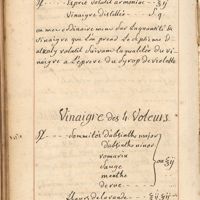 ℞ Esprit volatil armoniac ℥ij
Vinaigre distillé q.
mesure ordinaire mais sur la quantité de
vinaigre que l'on prend le septieme d'
alkaly volatil suivant la qualité du vi
naigre a l'epreuve du syrop de violette
Vinaigre des 4 Voleurs.
℞ Sommités d'absinthe major
d'absinthe minor
romarin
sauge
menthe
de rue
an ℥ij
fleurs de lavande ℥ij